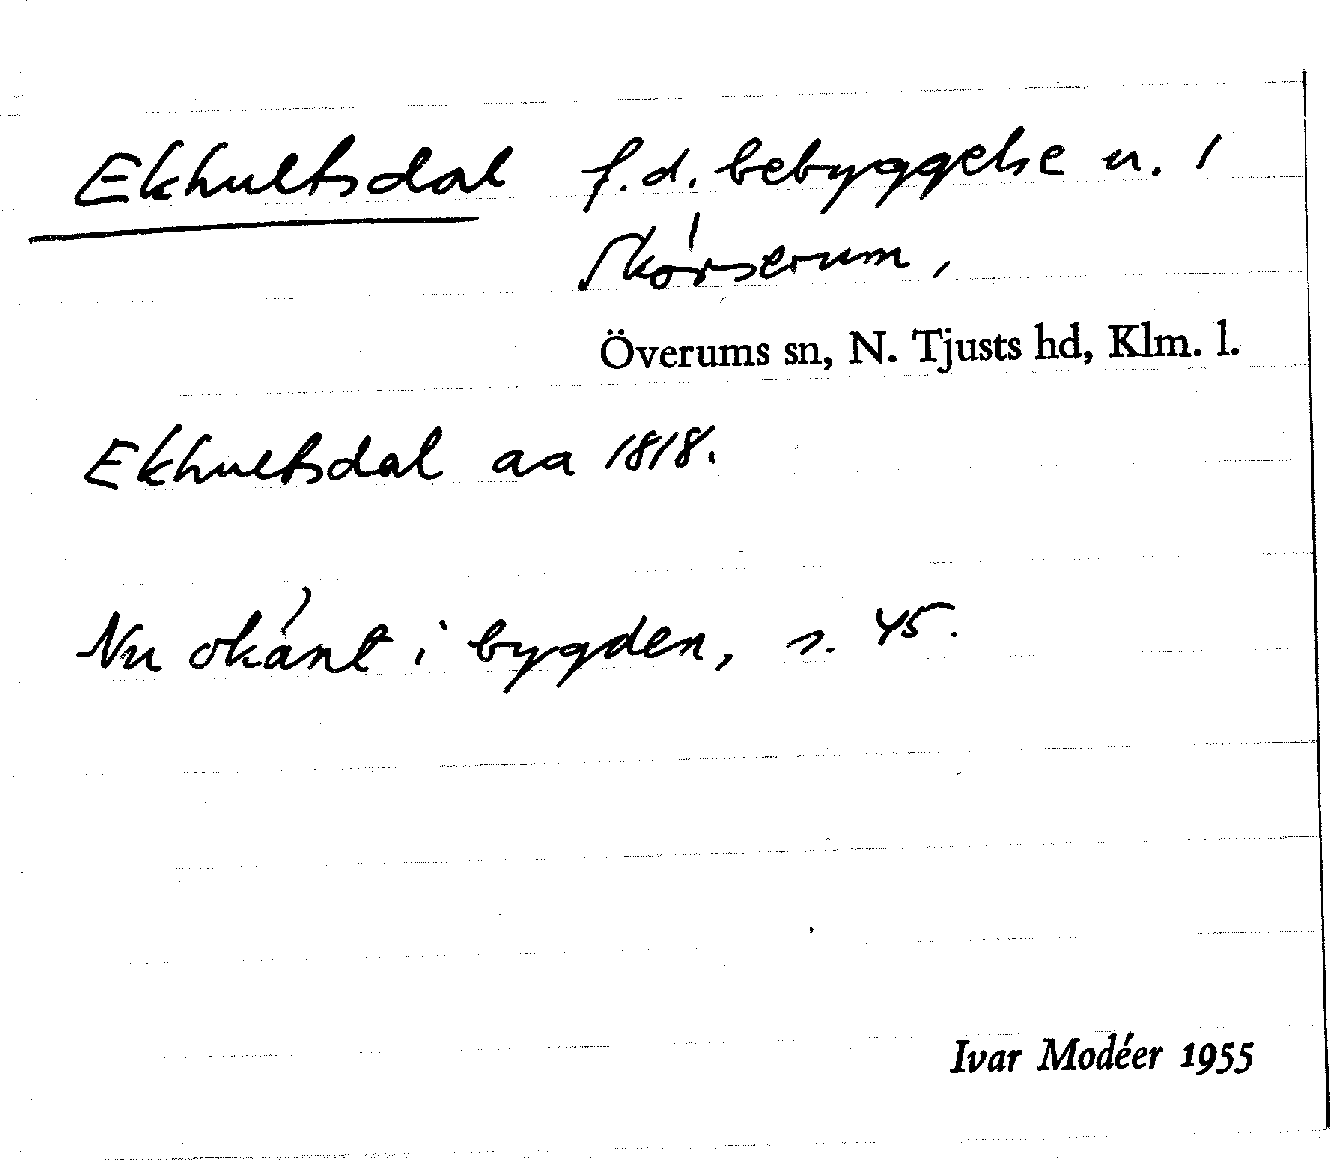 Ekhultsdal f.d. bebyggelse u. 1
Skörserum,
Överums sn, N. Tjusts hd, Klm. l.
Ekhultsdal aa 1818.
Nu okänt i bygden, s. 45.
Ivar Modéer 1955